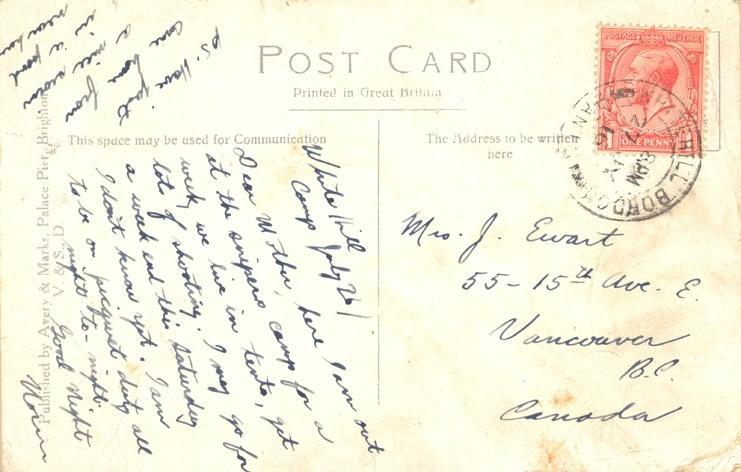 POST CARD
Printed in Great Britain
This space may be used for Communication
The Address to be written
here
POSTAGE REVENUE
ONE PENNY
1
WHITEHILL BORDON
8 PM
16
White Hill
Camp July 26/
Dear Mother, here I am out
at the snipers camp for a
week, we live in tents, get
lot of shooting. I may go for
a week end this Saturday
I don't know yet. I am
to be on picquet duty all
night to-night.
Good Night
PS. Have just
come from
a nice swim
in a pond
near here
Mrs. J. Ewart
55-15th Ave. E.
Vancouver
B.C.
Canada
Published by Avery & Marks, Palace Pier, Brighton
V. & S., D.